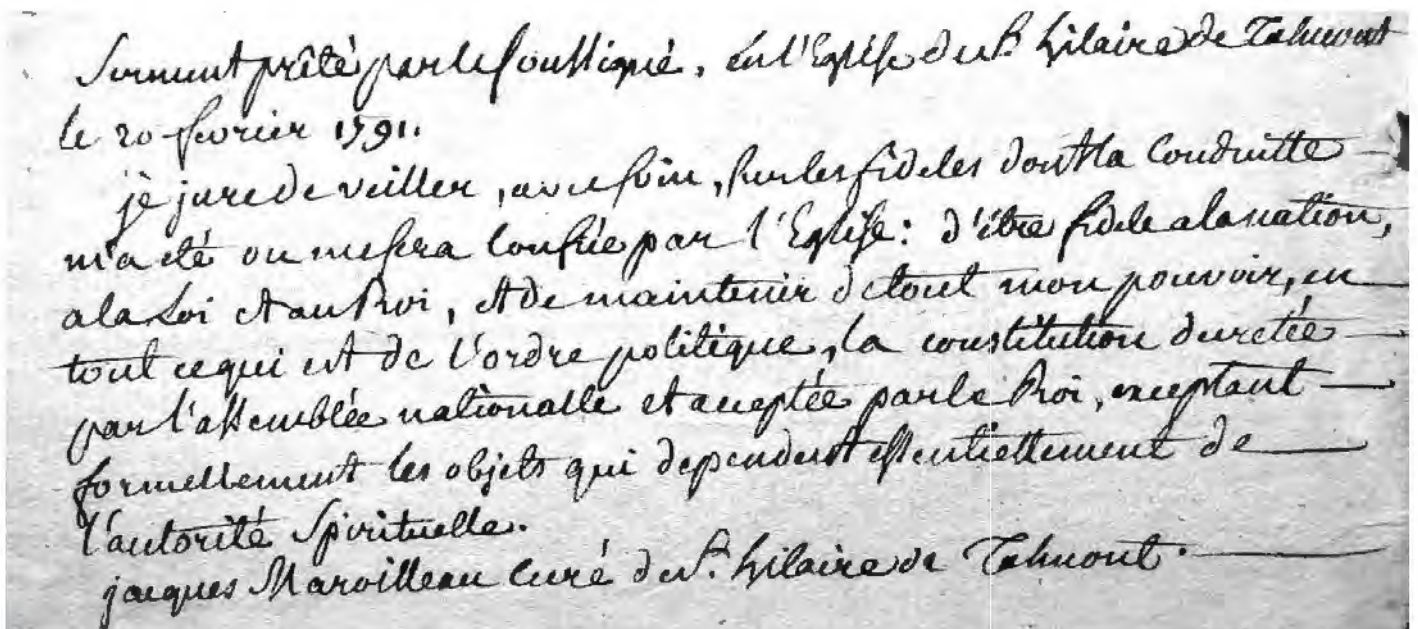 Serment prêté par le soussigné, en l'Eglise de St. hilaire de Talmont
le 20 fevrier 1791.
je jure de veiller, avec soin, sur les fideles dont la Conduitte
m'a eté ou me sera Confiée par l'Eglise: d'être fidele a la nation,
a la Loi et au Roi, et de maintenir de tout mon pouvoir, en
tout ce qui est de l'ordre politique, la constitution decretée
par l'assemblée nationalle et acceptée par le Roi, exceptant
formellement les objets qui dependent essentiellement de
l'autorité Spirituelle.
jacques Maroilleau Curé de St. hilaire de Talmont.